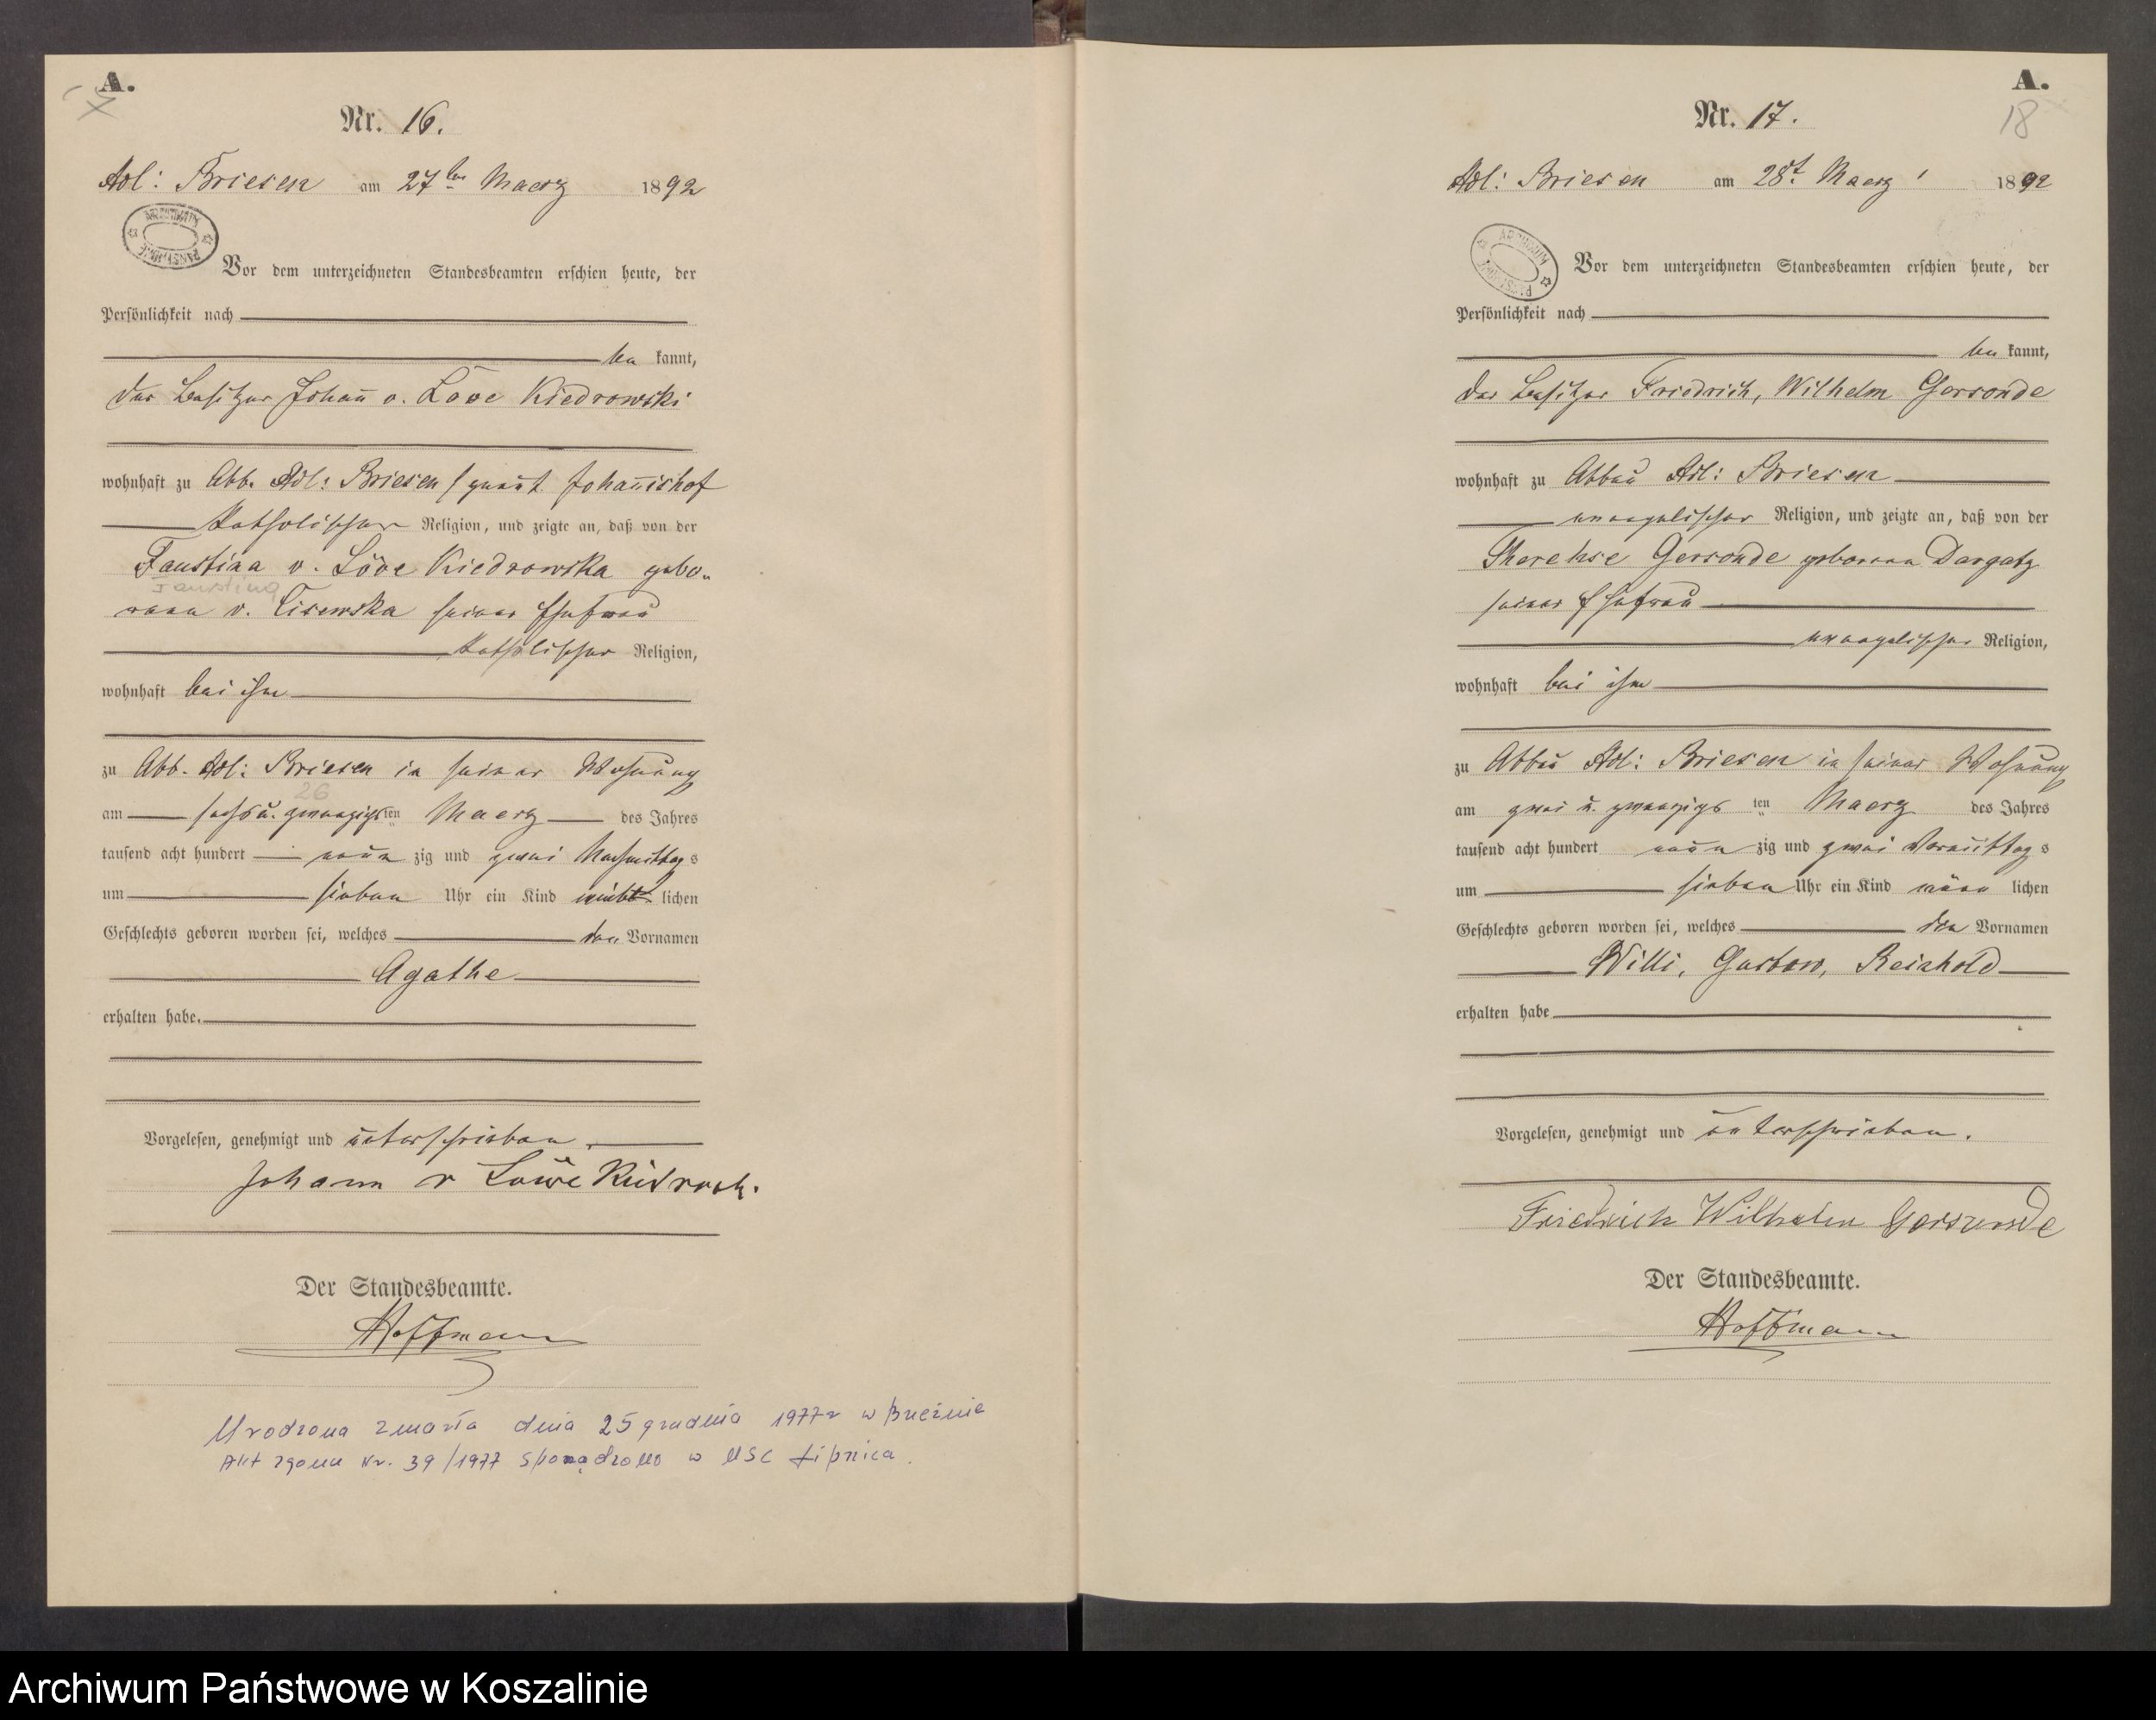 A.
Nr. 16.
Adl: Briesen am 27ten Maerz 1892
ARCHIWUM PAŃSTWOWE
Vor dem unterzeichneten Standesbeamten erschien heute, der
Persönlichkeit nach
be kannt,
der Besitzer Johann v. Löve Kiedrowski
wohnhaft zu Abb. Adl: Briesen genannt Johannishof
katholischer Religion, und zeigte an, daß von der
Faustina v. Löve Kiedrowska gebo-
Faustina
rene v. Lisewska seiner Ehefrau
katholischer Religion,
wohnhaft bei ihm
zu Abb. Adl: Briesen in seiner Wohnung
26
am sechs u. zwanzigsten Maerz des Jahres
tausend acht hundert neun zig und zwei Nachmittags
um sieben Uhr ein Kind weiblichen
Geschlechts geboren worden sei, welches den Vornamen
Agathe
erhalten habe.
Vorgelesen, genehmigt und unterschrieben.
Johann v Löwe
Der Standesbeamte.
Hoffmann
Urodzona zmarła dnia 25 grudnia 1977r w Brzeźnie
Akt zgonu Nr. 39/1977 sporządzono w USC Lipnica.
A.
18
Nr. 17.
Adl: Briesen am 28t Maerz 1892
ARCHIWUM PAŃSTWOWE
Vor dem unterzeichneten Standesbeamten erschien heute, der
Persönlichkeit nach
be kannt,
der Besitzer Friedrich, Wilhelm Gersonde
wohnhaft zu Abbau Adl: Briesen
evangelischer Religion, und zeigte an, daß von der
Therehse Gersonde geborene Dargatz
seiner Ehefrau
evangelischer Religion,
wohnhaft bei ihm
zu Abbau Adl: Briesen in seiner Wohnung
am zwei u. zwanzigsten Maerz des Jahres
tausend acht hundert neun zig und zwei Vormittags
um sieben Uhr ein Kind männ lichen
Geschlechts geboren worden sei, welches den Vornamen
Willi, Gustaw, Reinhold
erhalten habe
Vorgelesen, genehmigt und unterschrieben.
Friedrich Wilhelm Gersonde
Der Standesbeamte.
Hoffmann
Archiwum Państwowe w Koszalinie